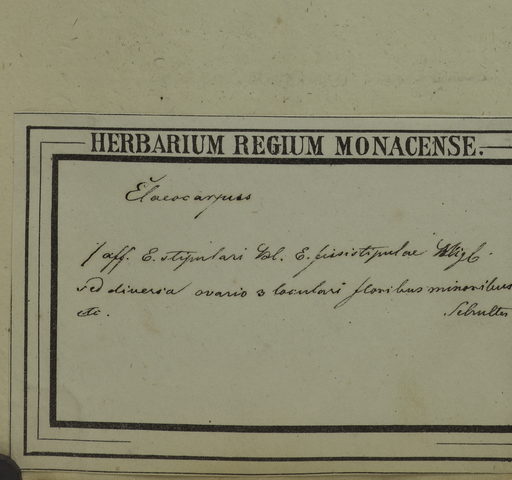 HERBARIUM REGIUM MONACENSE.
Elaeocarpus
aff. E. stipulari Bl. E. fissistipulae Miq.
sed diversa ovario 3 loculari floribus minoribus
etc.